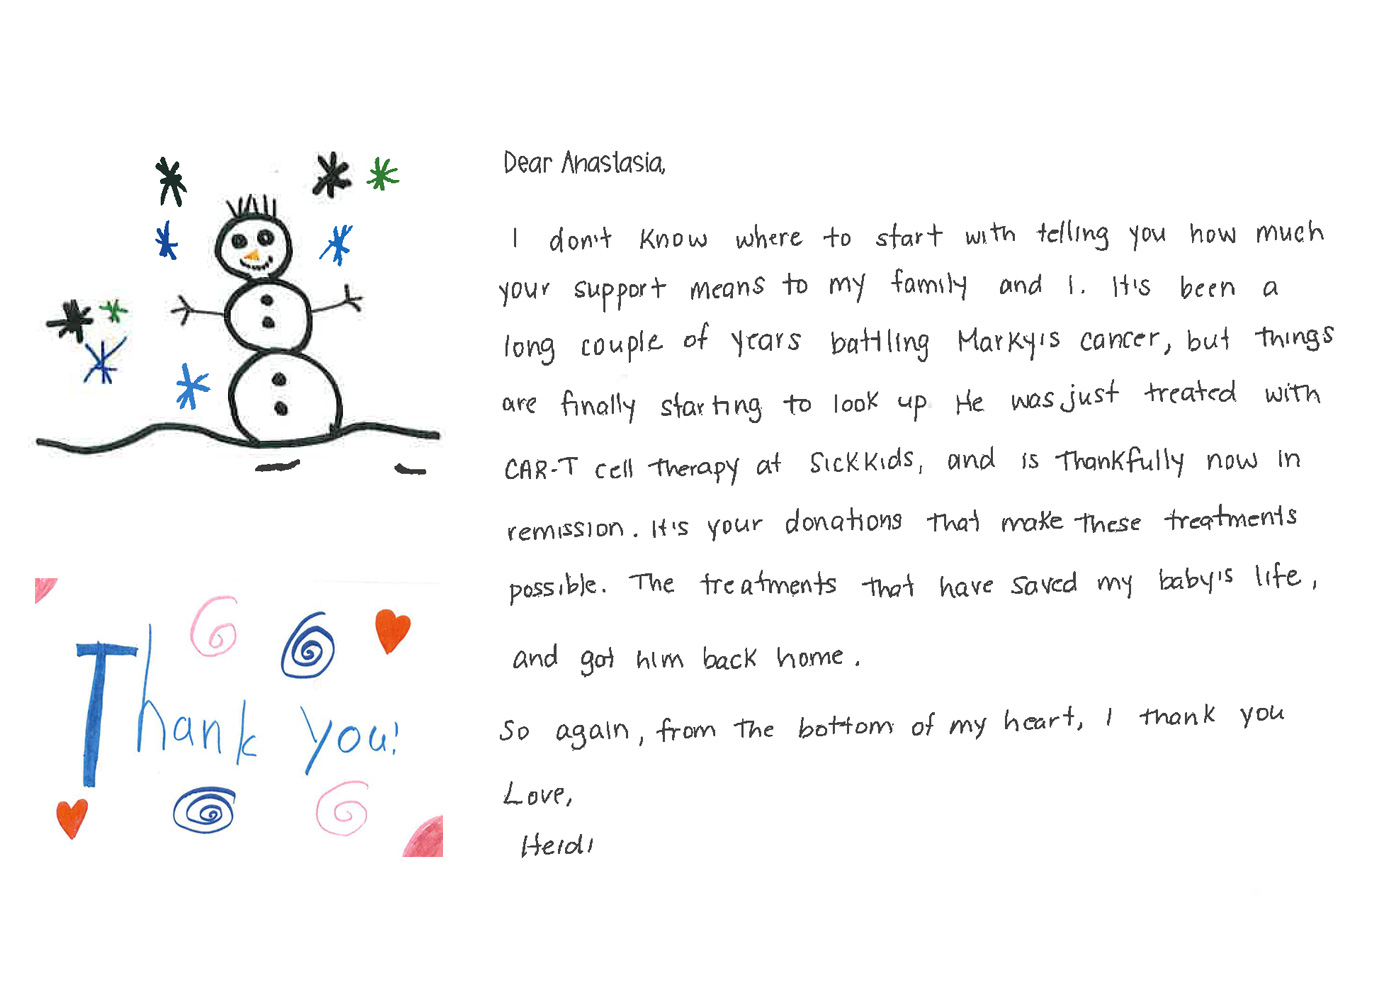 Dear Anastasia,
I don't know where to start with telling you how much
your support means to my family and I. It's been a
long couple of years battling Marky's cancer, but things
are finally starting to look up. He was just treated with
CAR-T cell therapy at SickKids, and is thankfully now in
remission. It's your donations that make these treatments
possible. The treatments that have saved my baby's life,
and got him back home.
So again, from the bottom of my heart, I thank you
Love,
Heidi
Thank you!